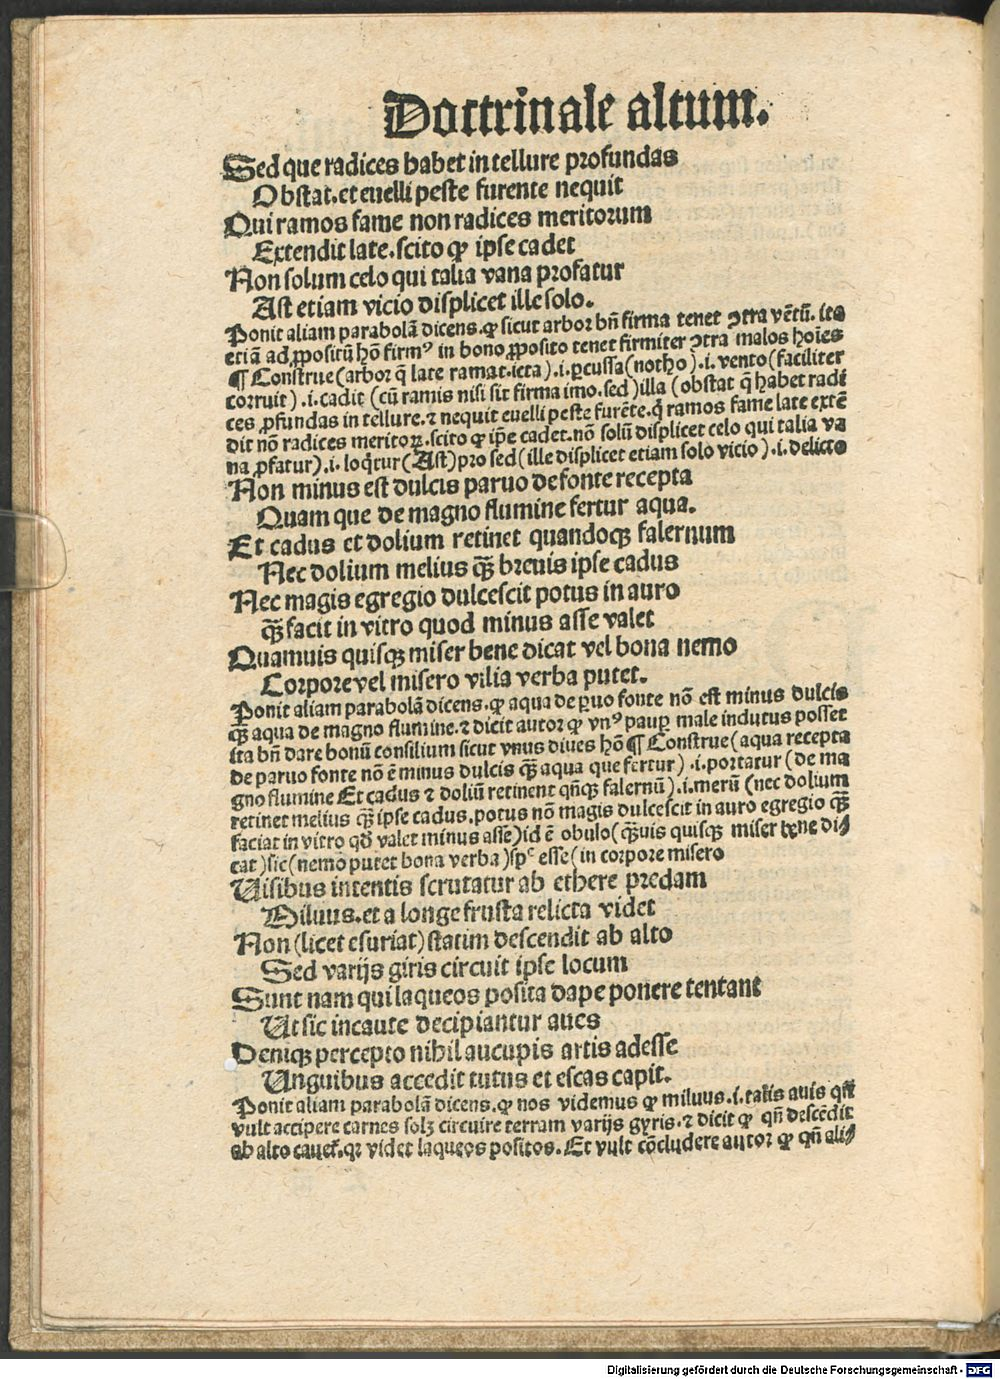 Doctrinale altum.
Sed que radices habet in tellure profundas
Obstat. et euelli peste furente nequit
Qui ramos fame non radices meritorum
Extendit late. scito ꝙ ipse cadet
Non solum celo qui talia vana profatur
Ast etiam vicio displicet ille solo.
Ponit aliam parabolā dicens. ꝙ sicut arbor bn̄ firma tenet ↄtra vētū. ita
etiā ad ꝓpositū hō firmꝰ in bono ꝓposito tenet firmiter ↄtra malos hoīes
¶ Construe (arbor q̄ late ramat. icta) .i. ꝑcussa (notho) .i. vento (faciliter
corruit) .i. cadit (cū ramis nisi sit firma imo. sed) illa (obstat q̄ habet radi
ces ꝓfundas in tellure. ⁊ nequit euelli peste furēte. q̇ ramos fame late extē
dit nō radices meritoꝝ. scito ꝙ ip̄e cadet. nō solū displicet celo qui talia va
na ꝓfatur) .i. loq̇tur (Ast) pro sed (ille displicet etiam solo vicio) .i. delicto
Non minus est dulcis paruo de fonte recepta
Quam que de magno flumine fertur aqua.
Et cadus et dolium retinet quandoqꝫ falernum
Nec dolium melius qꝫ̄ breuis ipse cadus
Nec magis egregio dulcescit potus in auro
qꝫ̄ facit in vitro quod minus asse valet
Quamuis quisqꝫ miser bene dicat vel bona nemo
Corpore vel misero vilia verba putet.
Ponit aliam parabolā dicens. ꝙ aqua de ꝑuo fonte nō est minus dulcis
qꝫ̄ aqua de magno flumine. ⁊ dicit autor ꝙ vnꝰ paupꝑ male indutus posset
ita bn̄ dare bonū consilium sicut vnus diues hō ¶ Construe (aqua recepta
de paruo fonte nō ē minus dulcis qꝫ̄ aqua que fertur) .i. portatur (de ma
gno flumine Et cadus ⁊ doliū retinent qn̄qꝫ falernū) .i. merū (nec dolium
retinet melius qꝫ̄ ipse cadus. potus nō magis dulcescit in auro egregio qꝫ̄
faciat in vitro qd̄ valet minus asse) id ē obulo (qꝫ̄uis quisqꝫ miser bene di⸗
cat) sic (nemo putet bona verba) spᶜ esse (in corpore misero
Uisibus intentis scrutatur ab ethere predam
Miluus. et a longe frusta relicta videt
Non (licet esuriat) statim descendit ab alto
Sed varijs giris circuit ipse locum
Sunt nam qui laqueos posita dape ponere tentant
Ut sic incaute decipiantur aues
Deniqꝫ percepto nihil aucupis artis adesse
Unguibus accedit tutus et escas capit.
Ponit aliam parabolā dicens. ꝙ nos videmus ꝙ miluus. i. talis auis qn̄
vult accipere carnes solꝫ circuire terram varijs gyris. ⁊ dicit ꝙ qn̄ descēdit
ab alto cauet. qꝛ videt laqueos positos. Et vult cōcludere autor ꝙ qn̄ ali⸗
Digitalisierung gefördert durch die Deutsche Forschungsgemeinschaft - DFG